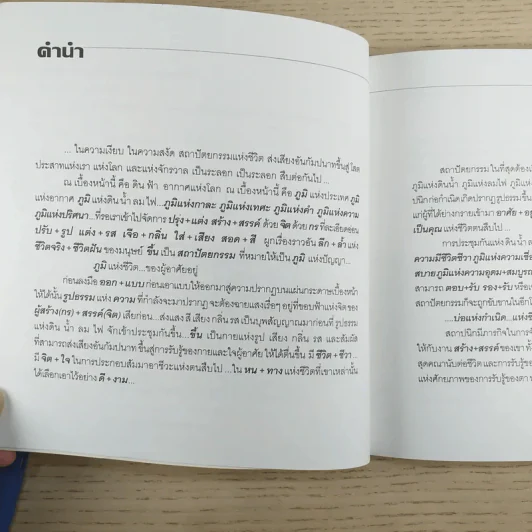 คำนำ
... ในความเงียบ ในความสงัด สถาปัตยกรรมแห่งชีวิต ส่งเสียงอันกัมปนาทขึ้นสู่ โสต
ประสาทแห่งเรา แห่งโลก และแห่งจักรวาล เป็นระลอก เป็นระลอก สืบต่อกันไป ...
ณ เบื้องหน้านี้ คือ ดิน ฟ้า อากาศแห่งโลก ณ เบื้องหน้านี้ คือ ภูมิ แห่งประเทศ ภูมิ
แห่งอากาศ ภูมิ แห่งดิน น้ำ ลม ไฟ...ภูมิแห่งกาละ ภูมิแห่งเทศะ ภูมิแห่งค่ำ ภูมิแห่งความ
ภูมิแห่งปริศนา...ที่รอเราเข้าไปจัดการ ปรุง+แต่ง สร้าง+สรรค์ ด้วย จิต ด้วย กร ที่ละเอียดอ่อน
ปรับ + รูป แต่ง + รส เจือ + กลิ่น ใส่ + เสียง สอด + สี ผูกเรื่องราวอัน ลึก + ล้ำ แห่ง
ชีวิตจริง + ชีวิตฝัน ของมนุษย์ ขึ้น เป็น สถาปัตยกรรม ที่หมายให้เป็น ภูมิ แห่งปัญญา...
ภูมิ แห่งชีวิต...ของผู้อาศัยอยู่
ก่อนลงมือ ออก + แบบ ก่อนเอาแบบให้ออกมาสู่ความปรากฏบนแผ่นกระดาษเบื้องหน้า
ให้ได้นั้น รูปธรรม แห่ง ความ ที่กำลังจะมาปรากฏ จะต้องฉายแสงเรื่อๆ อยู่ที่ขอบฟ้าแห่งจิตของ
ผู้สร้าง(กร) + สรรค์(จิต) เสียก่อน...ส่งแสง สี เสียง กลิ่น รส เป็นบุพสัญญาณมาก่อนที่ รูปธรรม
แห่งดิน น้ำ ลม ไฟ จักเข้าประชุมกันขึ้น...ขึ้น เป็นกายแห่งรูป เสียง กลิ่น รส และสัมผัส
ที่สามารถส่งเสียงอันกัมปนาท ขึ้นสู่การรับรู้ของกายและใจผู้อาศัย ให้ได้ตื่นขึ้น มี ชีวิต + ชีวา ..
มี จิต + ใจ ในการประกอบสัมมาอาชีวะแห่งตนสืบไป ...ใน หน + ทาง แห่งชีวิตที่เขาเหล่านั้น
ได้เลือกเอาไว้อย่าง ดี + งาม...
สถาปัตยกรรม ในที่สุดต้อง
ภูมิแห่งดินน้ำ ภูมิแห่งลมไฟ ภูมิแห่ง
ปนิกก่อกำเนิด เกิดปรากฏ รูปธรรมขึ้น
แก่ผู้ที่ได้ย่างกรายเข้ามา อาศัย + อยู่
เป็นคุณ แห่งชีวิตสืบไป ...
การประชุมกันแห่ง ดิน น้ำ ล
ความมีชีวิตชีวา ภูมิแห่งความเชื่อ
สบาย ภูมิแห่งความอุดม+สมบูรณ
สามารถ ตอบ+รับ รอง+รับ หรือ
สถาปัตยกรรมก็จะถูกขับขานในอีก
...บ่อแห่งกำเนิด...แห่งชี
สถาปนิกมีภารกิจในการจั
ให้กับงาน สร้าง+สรรค์ ของเขา ทั้
สุดคณานับต่อชีวิต และการรับรู้ของ
แห่งศักยภาพของการรับรู้ของตา